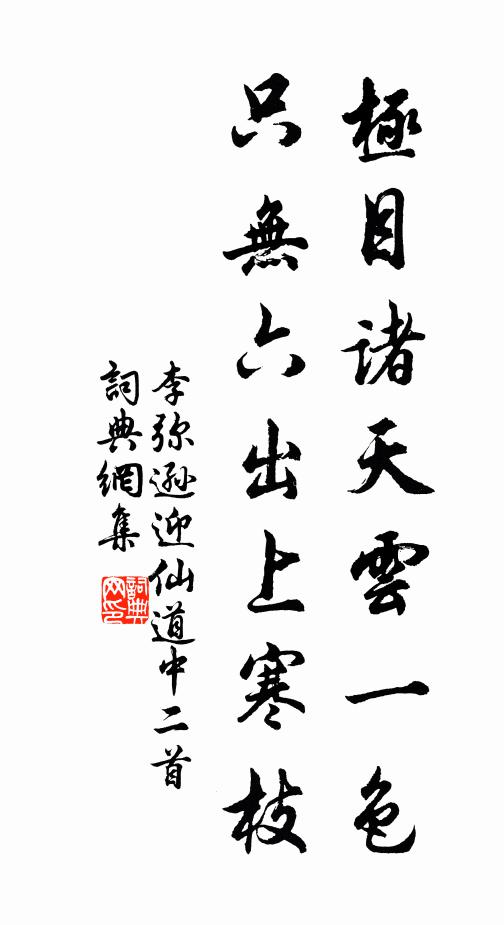 極目諸天雲一色
只無六出上寒枝
李弥遜迎仙道中二首
詞典網集
詞典
网印